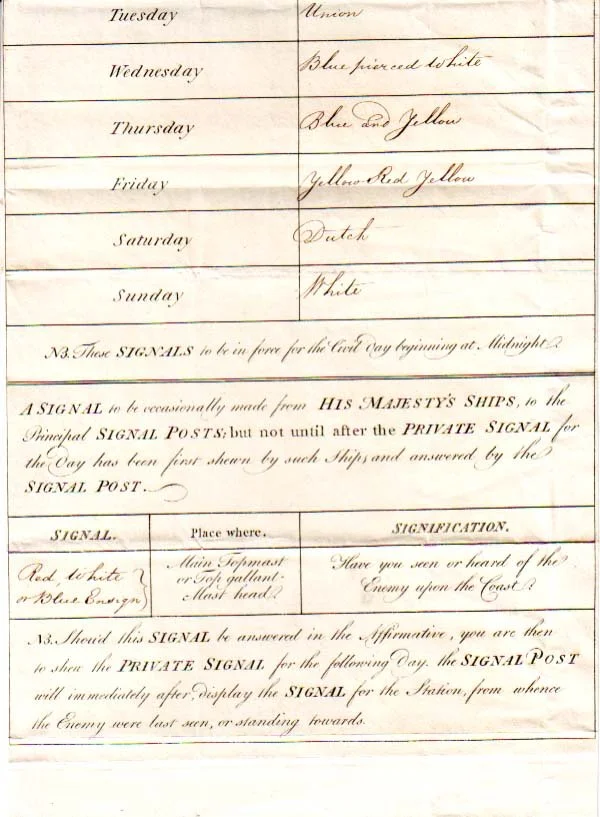 Tuesday Union
Wednesday Blue pierced White
Thursday Blue and Yellow
Friday Yellow Red Yellow
Saturday Dutch
Sunday White
NB. These SIGNALS to be in force for the Civil day beginning at Midnight.
A SIGNAL to be occasionally made from HIS MAJESTY'S SHIPS, to the
Principal SIGNAL POSTS; but not until after the PRIVATE SIGNAL for
the Day has been first shewn by such Ships, and answered by the
SIGNAL POST.
SIGNAL. Place where. SIGNIFICATION.
Red, White
or Blue Ensign
Main Topmast
or Top gallant-
Mast head.
Have you seen or heard of the
Enemy upon the Coast?
NB. Should this SIGNAL be answered in the Affirmative, you are then
to shew the PRIVATE SIGNAL for the following day. the SIGNAL POST
will immediately after, display the SIGNAL for the Station, from whence
the Enemy were last seen, or standing towards.